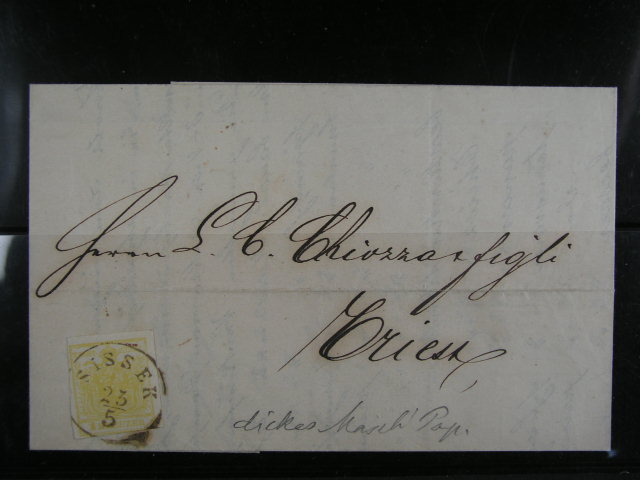 Herrn L. C. Chiozza & figli
Triest
SISSEK
23
5
dickes Masch' Pap.